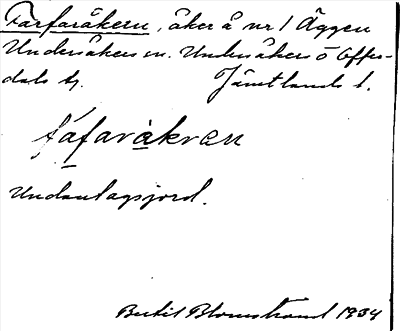 Farfaråkern, åker å nr 1 Äggen
Undersåkers sn. Undersåkers o Offer-
dals tg. Jämtlands l.
fáfaråkren
Undantagsjord.
Bertil Blomstrand 1934